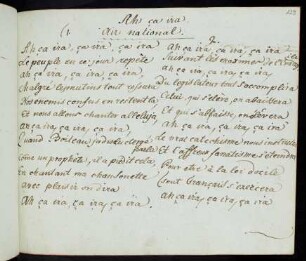 Ah ça ira
Air national.
1
Ah ça ira, ça ira, ça ira
Le peuple en ce jour répète
ah ça ira, ça ira, ça ira
Malgré les mutins tout réussira
Nos ennemis confus en restent là
Et nous allons chanter alleluya
ah ça ira, ça ira, ça ira
quand Boileau jadis du clergé parla
Comme un prophète, il a prédit cela
En chantant ma chansonnette
avec plaisir on dira
Ah ça ira, ça ira, ça ira
2
Ah ça ira, ça ira, ça ira
suivant les maximes de l'évangile
ah ça ira, ça ira, ça ira
Du législateur tout s'accomplira
Celui qui s'élève, on abaissera
Et qui s'abaisse, on élèvera
ah ça ira, ça ira, ça ira
le vrai catéchisme nous instruira
Et l'affreux fanatisme s'éteindra
Pour être à la loi docile
tout français s'exercera
ah ça ira, ça ira, ça ira